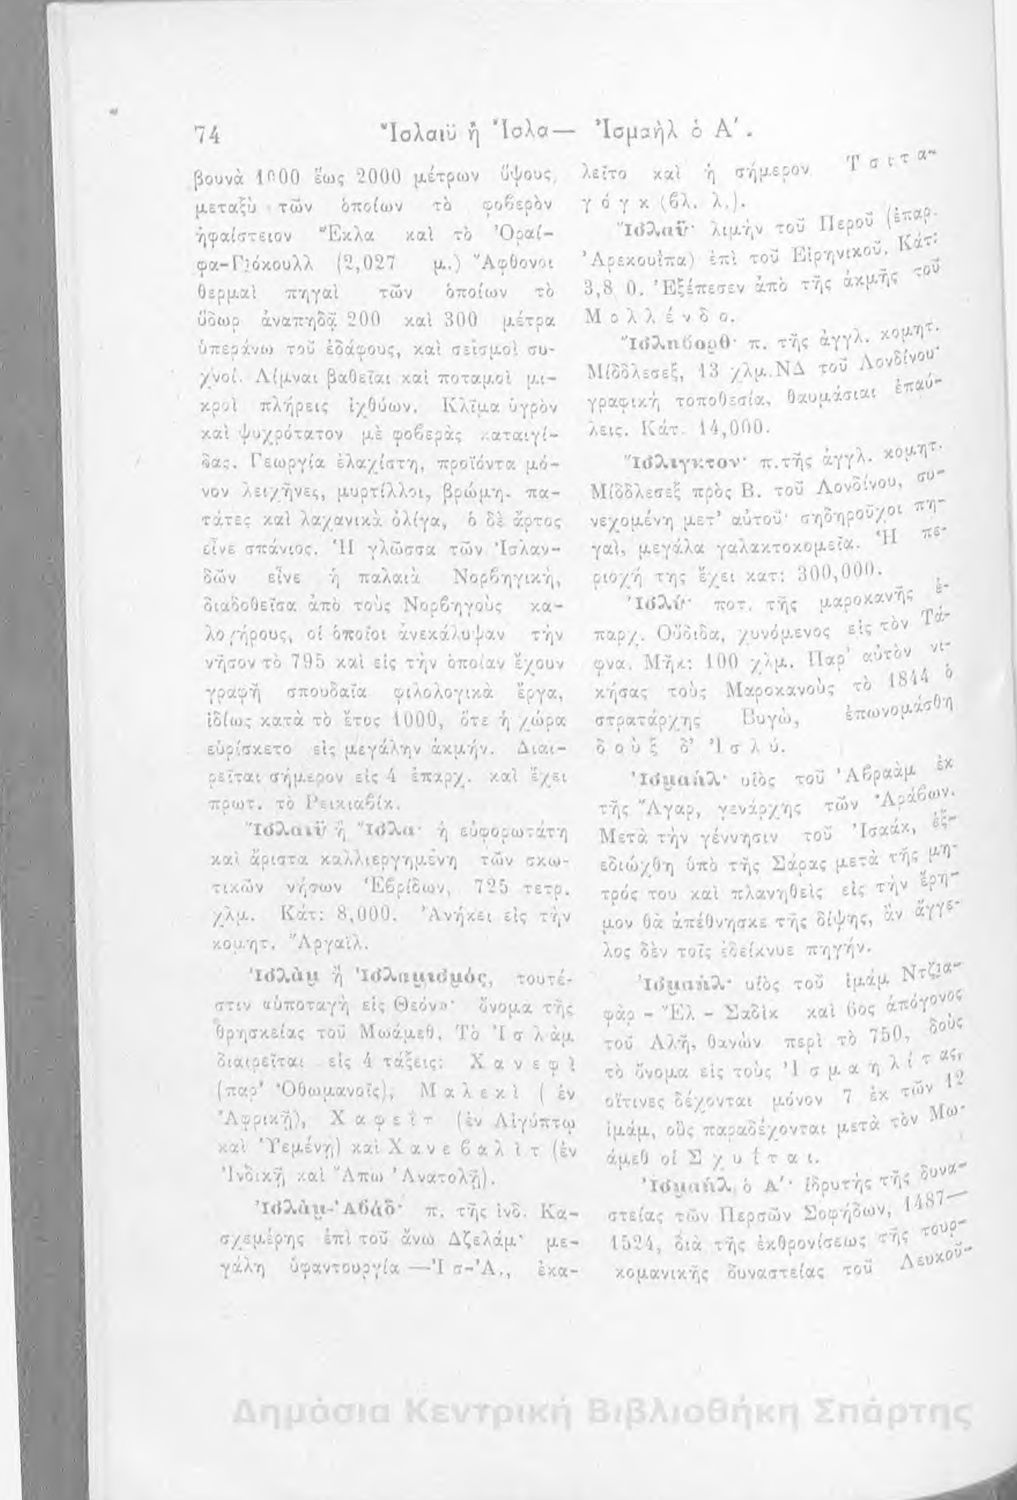 74 Ἴσλαιϋ ἢ Ἴσλα— Ἰσμαὴλ ὁ Α΄.
βουνὰ 1000 ἕως 2000 μέτρων ὕψους,
μεταξὺ τῶν ὁποίων τὸ φοβερὸν
ἡφαίστειον Ἕκλα καὶ τὸ Ὀραί-
φα-Γιόκουλλ (2,027 μ.) Ἄφθονοι
θερμαὶ πηγαὶ τῶν ὁποίων τὸ
ὕδωρ ἀναπηδᾷ 200 καὶ 300 μέτρα
ὑπεράνω τοῦ ἐδάφους, καὶ σεισμοὶ συ-
χνοί. Λίμναι βαθεῖαι καὶ ποταμοὶ μι-
κροὶ πλήρεις ἰχθύων. Κλῖμα ὑγρὸν
καὶ ψυχρότατον μὲ φοβερὰς καταιγί-
δας. Γεωργία ἐλαχίστη, προϊόντα μό-
νον λειχῆνες, μυρτίλλοι, βρώμη. πα-
τάτες καὶ λαχανικὰ ὀλίγα, ὁ δὲ ἄρτος
εἶνε σπάνιος. Ἡ γλῶσσα τῶν Ἰσλαν-
δῶν εἶνε ἡ παλαιὰ Νορβηγικὴ,
διαδοθεῖσα ἀπὸ τοὺς Νορβηγοὺς κα-
λογήρους, οἱ ὁποῖοι ἀνεκάλυψαν τὴν
νῆσον τὸ 795 καὶ εἰς τὴν ὁποίαν ἔχουν
γραφῆ σπουδαῖα φιλολογικὰ ἔργα,
ἰδίως κατὰ τὸ ἔτος 1000, ὅτε ἡ χώρα
εὑρίσκετο εἰς μεγάλην ἀκμήν. Διαι-
ρεῖται σήμερον εἰς 4 ἐπαρχ. καὶ ἔχει
πρωτ. τὸ Ρεικιαβίκ.
Ἴσλαιϋ ἢ Ἴσλα· ἡ εὐφορωτάτη
καὶ ἄριστα καλλιεργημένη τῶν σκω-
τικῶν νήσων Ἑβρίδων, 725 τετρ.
χλμ. Κάτ: 8,000. Ἀνήκει εἰς τὴν
κομητ. Ἄργαϊλ.
Ἰσλὰμ ἢ Ἰσλαμισμός, τουτέ-
στιν «ὑποταγὴ εἰς Θεόν»· ὄνομα τῆς
θρησκείας τοῦ Μωάμεθ. Τὸ Ἰσλὰμ
διαιρεῖται εἰς 4 τάξεις: Χανεφὶ
(παρ' Ὀθωμανοῖς), Μαλεκὶ (ἐν
Ἀφρικῇ), Χαφεῒτ (ἐν Αἰγύπτῳ
καὶ Ὑεμένῃ) καὶ Χανεβαλὶτ (ἐν
Ἰνδικῇ καὶ Ἄπω Ἀνατολῇ).
Ἰσλὰμ-Ἀβάδ· π. τῆς ἰνδ. Κα-
σχεμέρης ἐπὶ τοῦ ἄνω Δζελάμ· με-
γάλη ὑφαντουργία —Ἰσ-Ἀ., ἐκα-
λεῖτο καὶ ἡ σήμερον Τσιτα-
γόγκ (βλ. λ.).
Ἴσλαϋ· λιμὴν τοῦ Περοῦ (ἐπαρ.
Ἀρεκουίπα) ἐπὶ τοῦ Εἰρηνικοῦ. Κάτ:
3,8 0. Ἐξέπεσεν ἀπὸ τῆς ἀκμῆς τοῦ
Μολλένδο.
Ἴσληβορθ· π. τῆς ἀγγλ. κομητ.
Μίδδλεσεξ, 13 χλμ.ΝΔ τοῦ Λονδίνου·
γραφικὴ τοποθεσία, θαυμάσιαι ἐπαύ-
λεις. Κάτ. 14,000.
Ἴσλιγκτον· π.τῆς ἀγγλ. κομητ.
Μίδδλεσεξ πρὸς Β. τοῦ Λονδίνου, συ-
νεχομένη μετ' αὐτοῦ· σηδηροῦχοι πη-
γαὶ, μεγάλα γαλακτοκομεῖα. Ἡ πε-
ριοχή της ἔχει κατ: 300,000.
Ἰσλὺ· ποτ. τῆς μαροκανῆς ἐ-
παρχ. Οὔδιδα, χυνόμενος εἰς τὸν Τά-
φνα. Μῆκ: 100 χλμ. Παρ' αὐτὸν νι-
κήσας τοὺς Μαροκανοὺς τὸ 1844 ὁ
στρατάρχης Βυγὼ, ἐπωνομάσθη
δοὺξ δ' Ἰσλύ.
Ἰσμαὴλ· υἱὸς τοῦ Ἀβραὰμ ἐκ
τῆς Ἄγαρ, γενάρχης τῶν Ἀράβων.
Μετὰ τὴν γέννησιν τοῦ Ἰσαάκ, ἐξ-
εδιώχθη ὑπὸ τῆς Σάρας μετὰ τῆς μη-
τρός του καὶ πλανηθεὶς εἰς τὴν ἔρη-
μον θὰ ἀπέθνησκε τῆς δίψης, ἂν ἄγγε-
λος δὲν τοῖς ἐδείκνυε πηγήν.
Ἰσμαήλ· υἱὸς τοῦ ἰμάμ Ντζια-
φὰρ - Ἒλ - Σαδὶκ καὶ 6ος ἀπόγονος
τοῦ Ἀλῆ, θανὼν περὶ τὸ 750, δοὺς
τὸ ὄνομα εἰς τοὺς Ἰσμαηλίτας,
οἵτινες δέχονται μόνον 7 ἐκ τῶν 12
ἰμάμ, οὓς παραδέχονται μετὰ τὸν Μω-
άμεθ οἱ Σχυίται.
Ἰσμαὴλ ὁ Α΄· ἱδρυτὴς τῆς δυνα-
στείας τῶν Περσῶν Σοφήδων, 1487—
1524, διὰ τῆς ἐκθρονίσεως τῆς τουρ-
κομανικῆς δυναστείας τοῦ Λευκοῦ-
Δημόσια Κεντρική Βιβλιοθήκη Σπάρτης